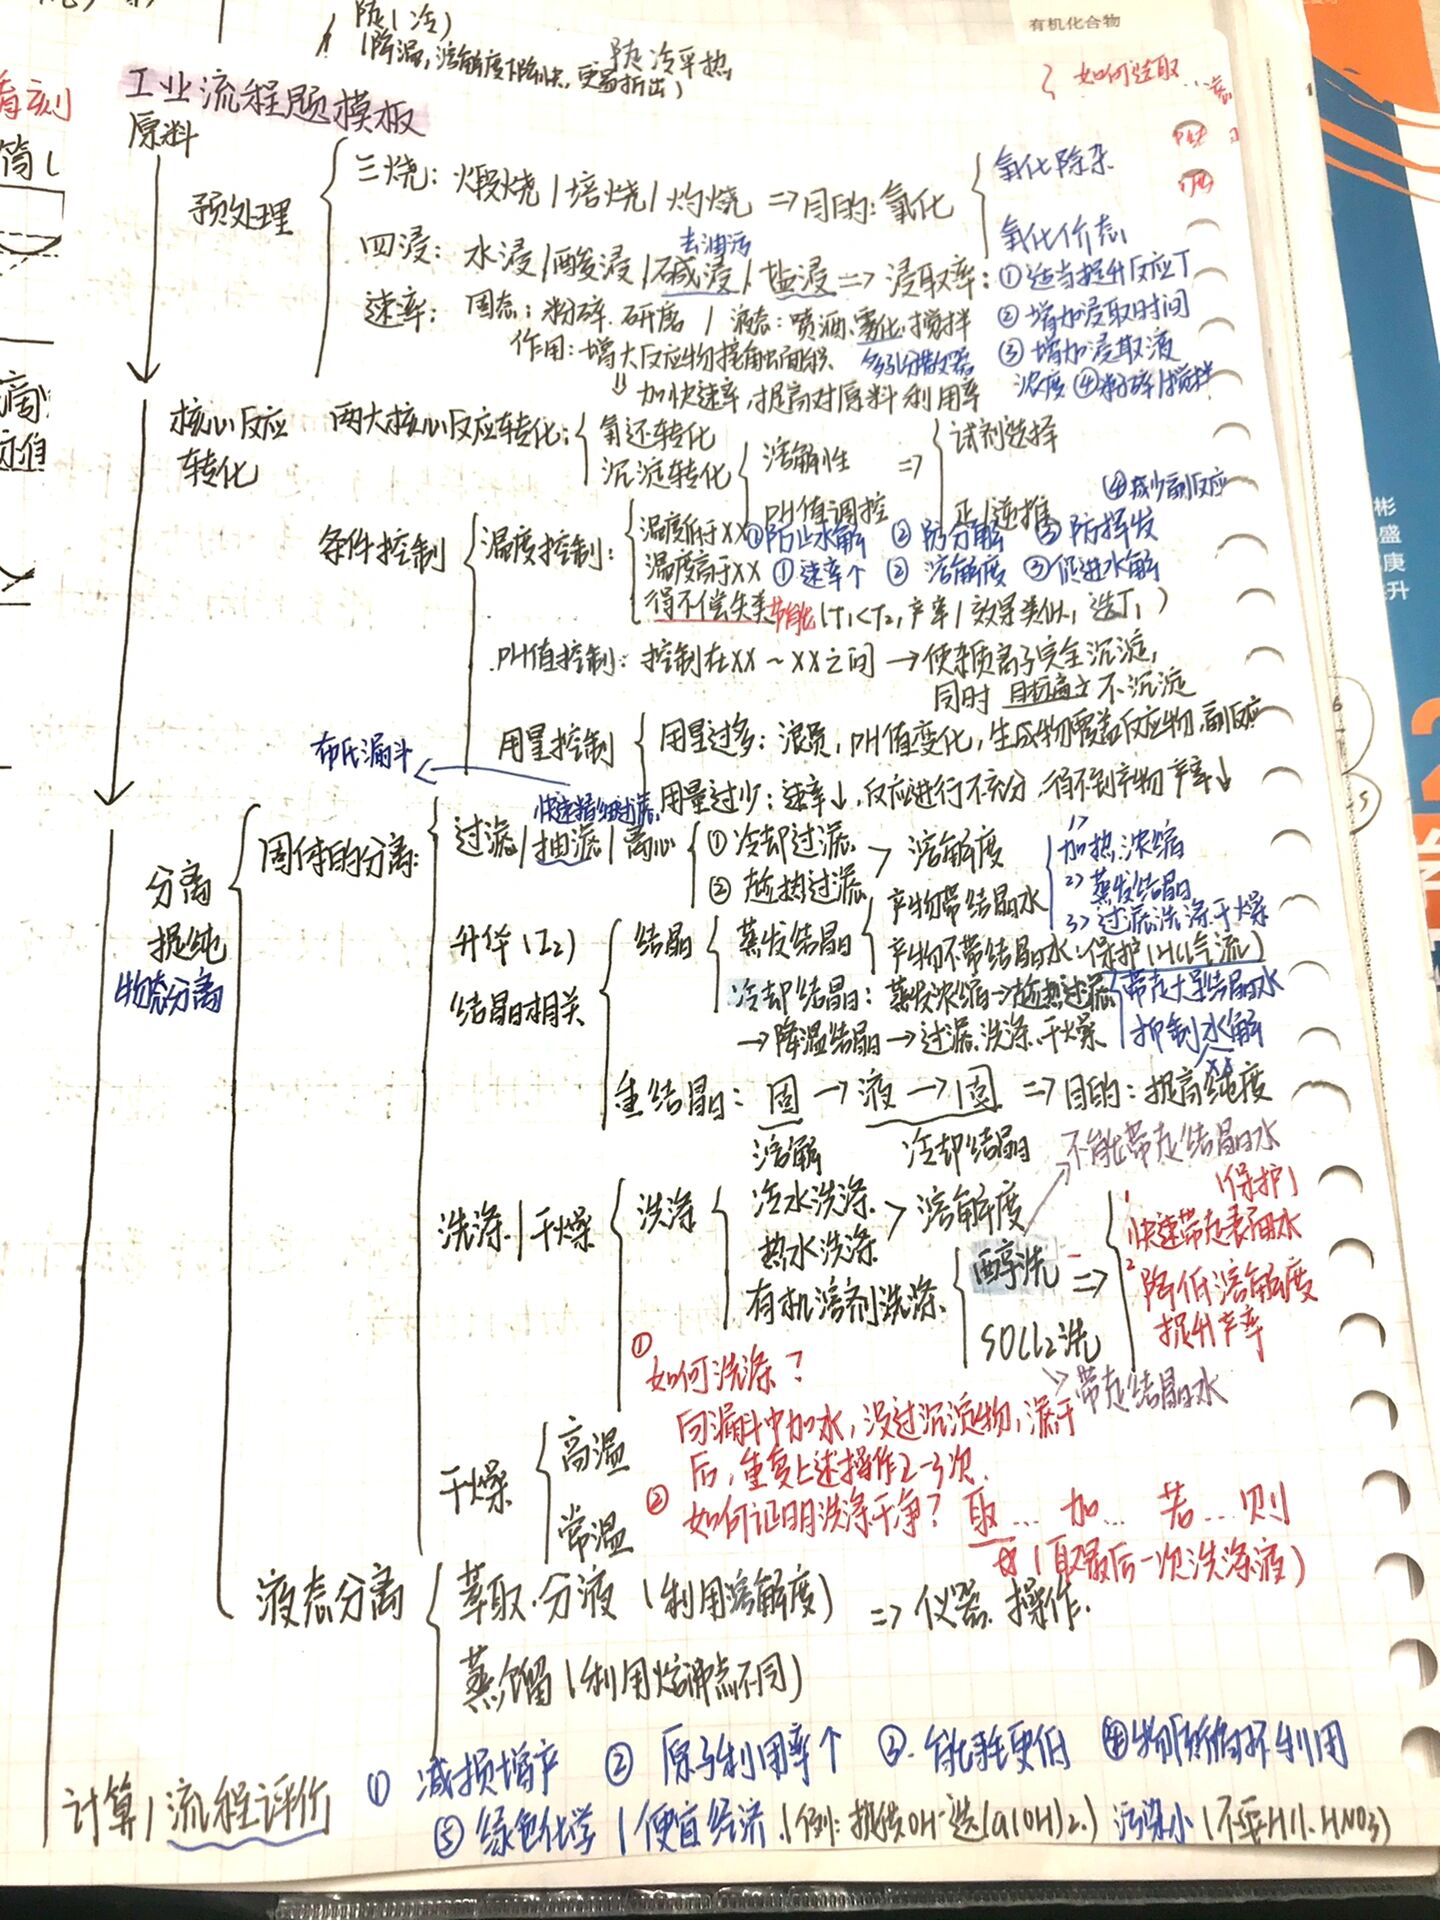 有机化合物
(降温,溶解度下降快,更易析出)
陡冷平热
如何选取
工业流程题模板
原料
预处理
三烧:煅烧/焙烧/灼烧 => 目的:氧化
氧化除杂
氧化价态
去油污
四浸:水浸/酸浸/碱浸/盐浸 => 浸取率:①适当提升反应T
②增加浸取时间
③增加浸取液
浓度 ④粉碎/搅拌
速率:固态:粉碎.研磨 / 液态:喷洒.雾化.搅拌
作用:增大反应物接触面积. 多孔分散器
加快速率,提高对原料利用率
核心反应
转化
两大核心反应转化:
氧还转化
沉淀转化
溶解性
PH值调控
=>
试剂选择
正/逆推
条件控制
温度控制:
④减少副反应
温度低于XX ①防止水解 ②防分解 ③防挥发
温度高于XX ①速率↑ ②溶解度 ③促进水解
得不偿失类 节能 (T₁<T₂,产率/效果类似,选T₁)
PH值控制:控制在XX~XX之间→使杂质离子完全沉淀,
同时 目标离子 不沉淀
用量控制
用量过多:浪费,PH值变化,生成物覆盖反应物,副反应
用量过少:速率↓,反应进行不充分,得不到产物产率↓
布氏漏斗
快速精细过滤.
分离
提纯
物态分离
固体的分离:
过滤/抽滤/离心
①冷却过滤.
②趁热过滤
> 溶解度
升华(I2)
结晶相关
结晶
蒸发结晶
产物带结晶水
1>加热浓缩
2>蒸发结晶
3>过滤.洗涤.干燥
产物不带结晶水:保护(HCl气流)
带走大量结晶水
抑制水解
冷却结晶:蒸发浓缩→趁热过滤
→降温结晶→过滤.洗涤.干燥
重结晶:固→液→固 => 目的:提高纯度
溶解 冷却结晶
不能带走结晶水
洗涤/干燥
洗涤
冷水洗涤.
热水洗涤
> 溶解度
有机溶剂洗涤.
醇洗 =>
(保护)
1 快速带走表面水
2 降低溶解度
提升产率
SOCl2洗
带走结晶水
① 如何洗涤?
向漏斗中加水,没过沉淀物,滤干
后,重复上述操作2-3次.
干燥
高温
常温
② 如何证明洗涤干净? 取... 加... 若... 则
(取最后一次洗涤液)
液态分离
萃取.分液 (利用溶解度) => 仪器.操作.
蒸馏 (利用熔沸点不同)
计算/流程评价
①减损增产 ②原子利用率↑ ③.能耗更低 ④物质循环利用
⑤绿色化学/便宜经济.(例:提供OH⁻选Ca(OH)2.) 污染小(不要HCl.HNO3)
彬
盛
庚
升